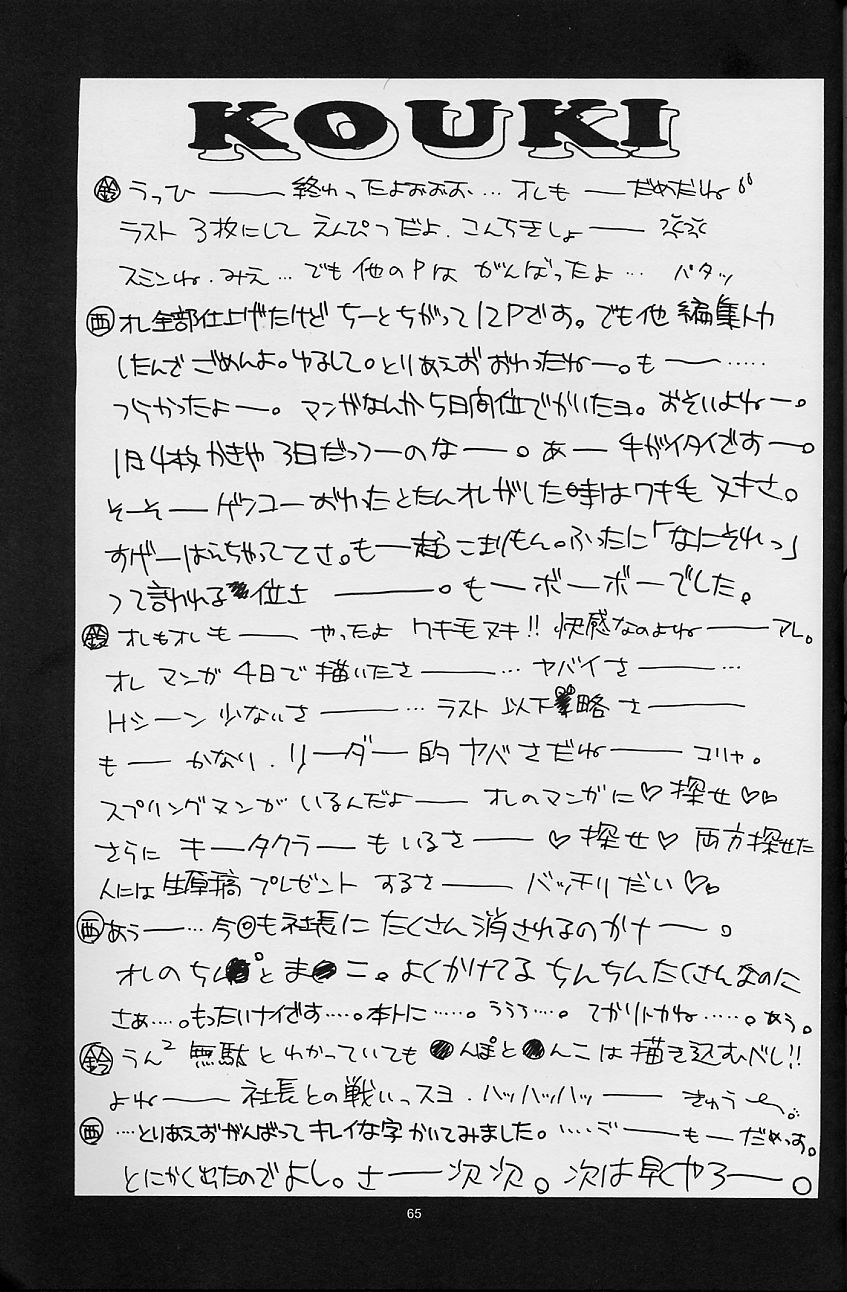 KOUKI
㊙鈴 うっひ――終わったよおおお…オレも―だめだね
ラスト3枚にして えんぴつだよ.こんちきしょ――
スミンね.みえ…でも他のPは がんばったよ… パタッ
西 オレ全部仕上げたけど ちーとちがって12Pです。でも他 編集トカ
したんで ごめんよ。ゆるして。とりあえず おわったねー。も――……
つらかったよー。マンガなんか5日間位でかいたヨ。おそいよねー。
1月4枚かきや 3日だっつーのなー。あー手がイタイですー。
そーそーゲンコーおわったとたんオレがした時はワキ毛 ヌキさ。
すげーはえちゃっててさ。もー超こまりもん。ふったに「なにそれっ」
って言われる位さ――。もーボーボーでした。
鈴 オレもオレも――やったよ ワキ毛ヌキ!! 快感なのよね――アレ。
オレ マンガ 4日で描いたさ――…ヤバイさ――…
Hシーン 少ないさ――…ラスト 以下略さ――
も―かなり.リーダー的ヤバさだね――コリャ。
スプリングマンがいるんだよ――オレのマンガに♡探せ♡♡
さらに キータクラーもいるさ――♡探せ♡ 両方探せた
人には 生原稿 プレゼント するさ――バッチリだい♡♡
西 あぅ―…今◎も社長に たくさん消されるのかナー。
オレの ち●●とま●こ。よくかけてる ちんちんたくさんなのに
さぁ…。もったいナイです…。本トに……。ううう…。てかリトカね……。あぅ。
鈴 うん² 無駄とわかっていても ●んぽと●んこは描き込むべし!!
よね――社長との戦いっスヨ.ハッハッハッ――きゅう〜
西 …とりあえずがんばって キレイな字かいてみました。も―だめっす。
とにかく出たのでよし。さ――次次。次は早くやろ――。
65